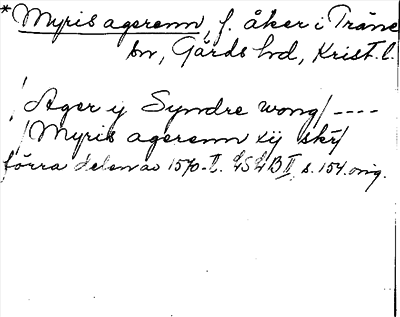 *Myris agerenn, f. åker i Träne
sn, Gärds hd, Krist. l.
/Ager y Syndre wong/ ----
/Myris agerenn xij skr/
förra delen av 1570-t. LSLB II, s. 154. orig.